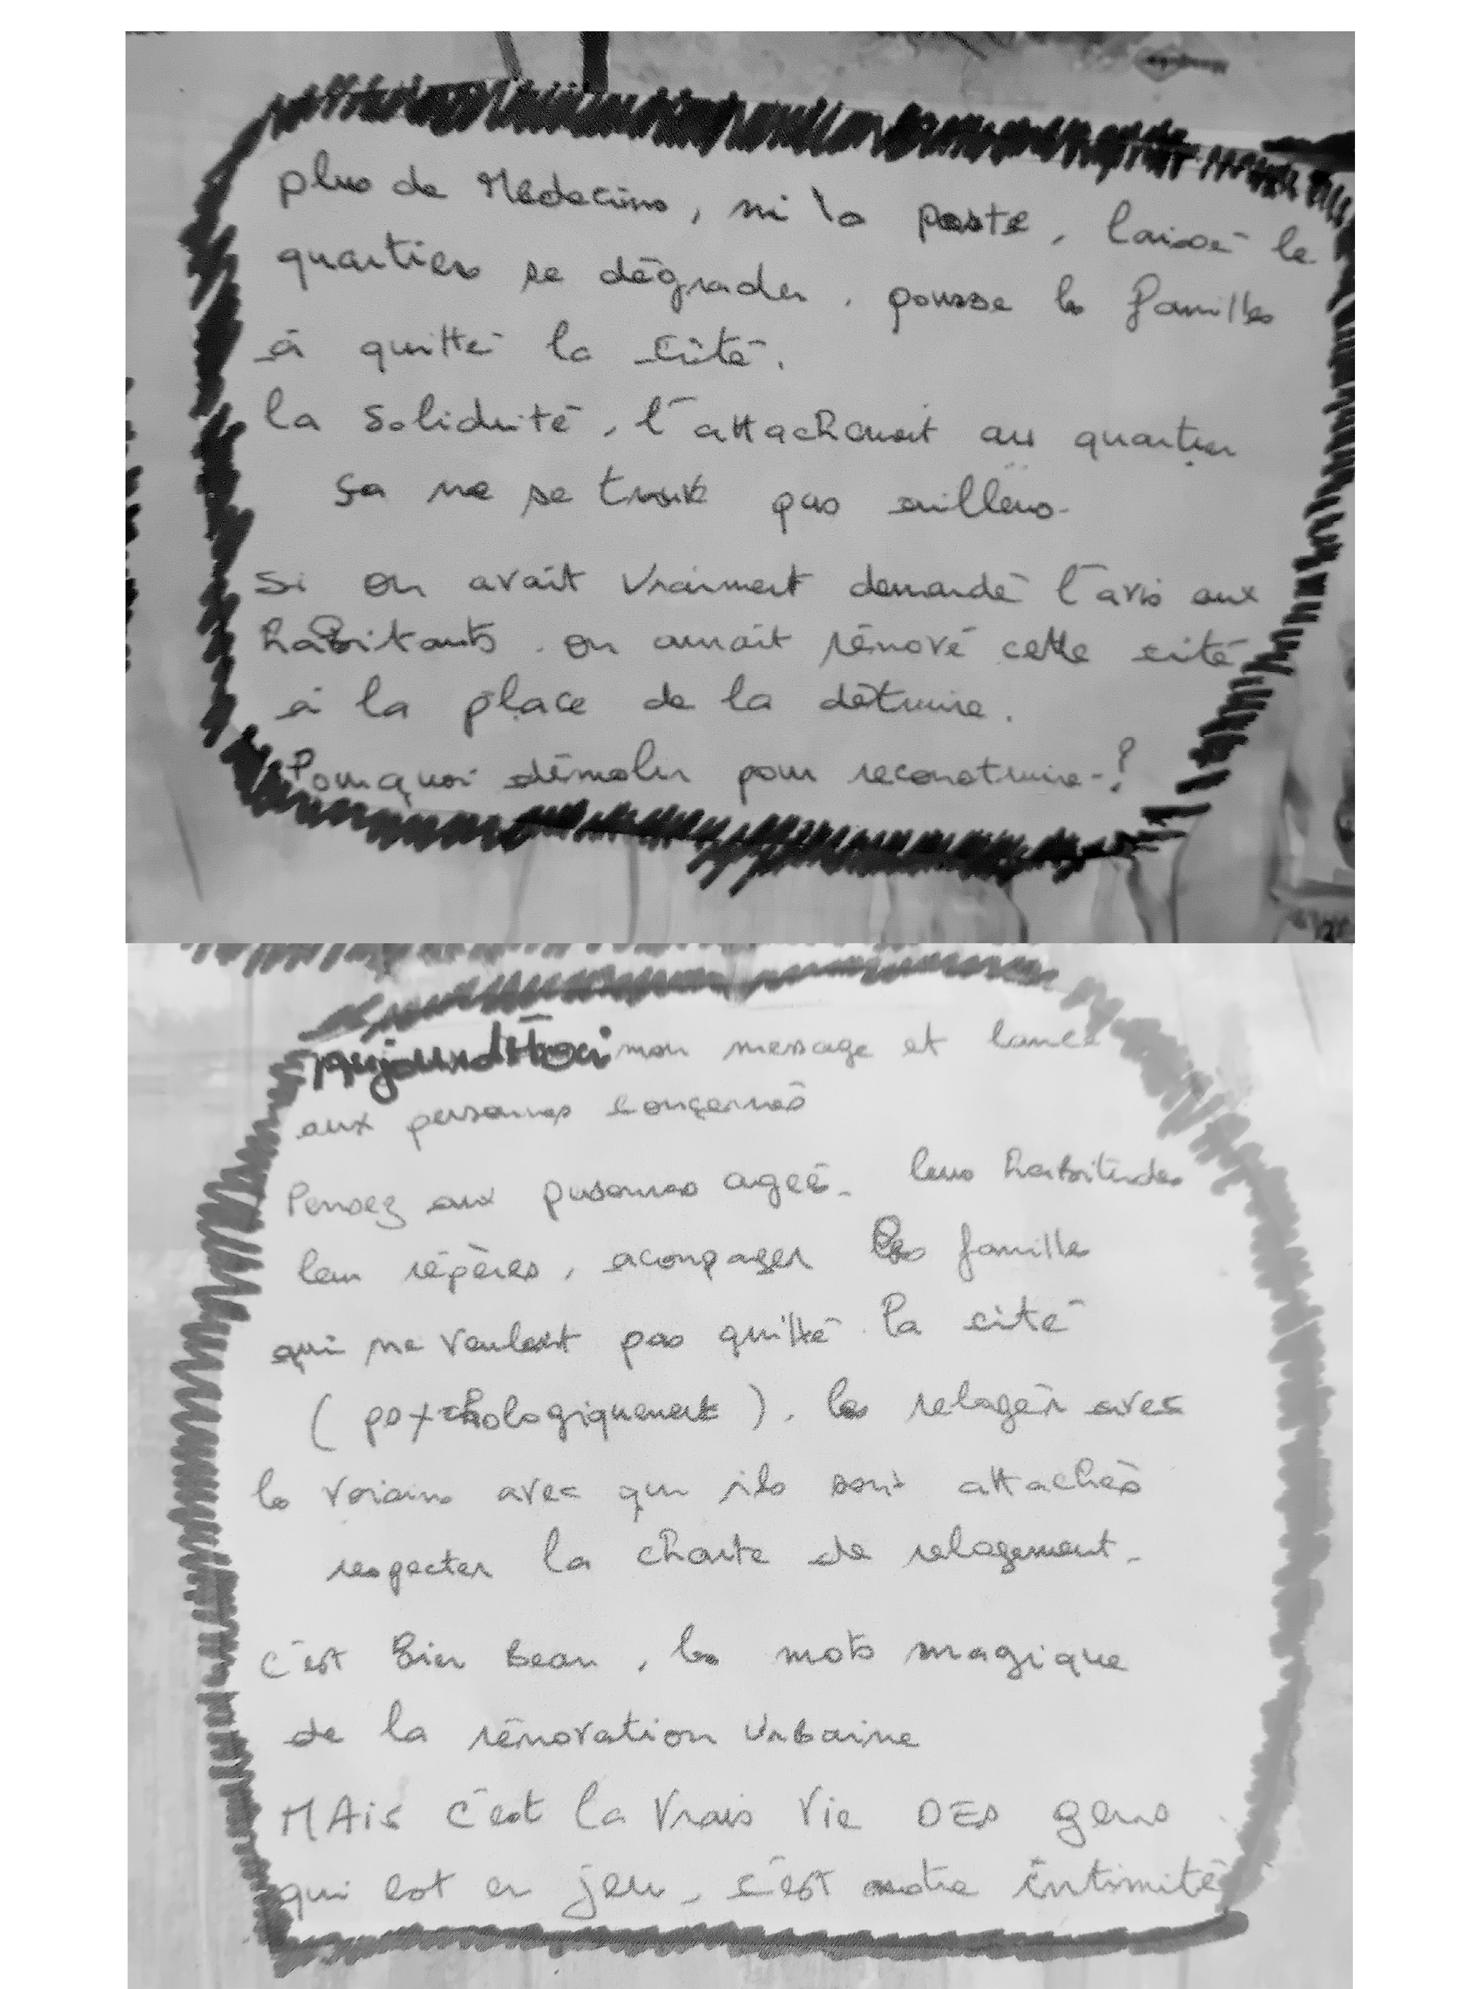 plus de Médecins, ni la poste, laissé le
quartiers se dégrader, pousse les familles
à quitté la cité.
la solidrité, l'attachement au quartier
ça ne se trouve pas ailleurs.
Si on avait vraiment demandé l'avis aux
habitants. on aurait rénové cette cité
à la place de la détruire.
Pourquoi démolir pour reconstruire ?
aujourd'hui mon message et lancé
aux personnes conçernés
Pensez aux personnes ageés. leurs habitudes
leur répères, acompager les famille
qui ne veulent pas quitté la cité
(psychologiquement). les relogér avec
les voisins avec qui ils sont attachés
respecter la charte de relogement.
C'est Bien Beau, les mots magique
de la rénovation Urbaine
MAis c'est la Vrais Vie DEs gens
qui est en jeu, c'est notre intimité